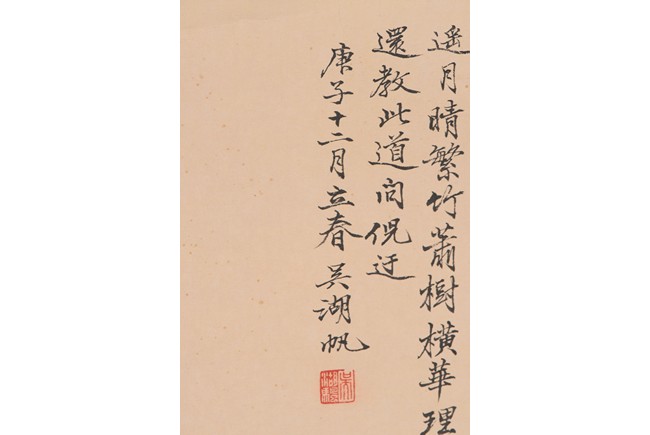 遥月晴繁竹蕭樹横華理
還教此道問倪迂
庚子十二月立春吳湖帆